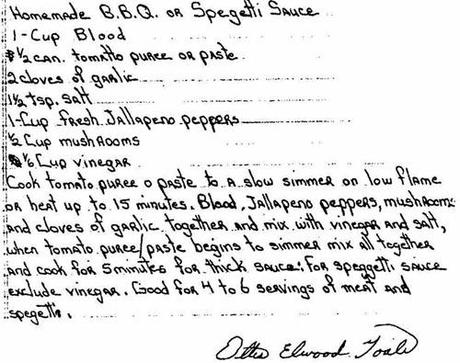 Homemade B.B.Q. or Spegetti Sauce
1-Cup Blood
½ can. tomatto puree or paste
2 cloves of garlic
1½ tsp. salt
1-Cup fresh Jallapeno peppers
½ Cup mushrooms
⅙ Cup vinegar
Cook tomato puree o paste to a slow simmer on low flame
or heat up to 15 minutes. Blood, Jallapeno peppers, mushrooms
and cloves of garlic together and mix with vinegar and salt,
when tomato puree/paste begins to simmer mix all together
and cook for 5 minutes for thick sauce. For speggetti sauce
exclude vinegar. Good for 4 to 6 servings of meat and
spegetti.
Ottis Elwood Toole